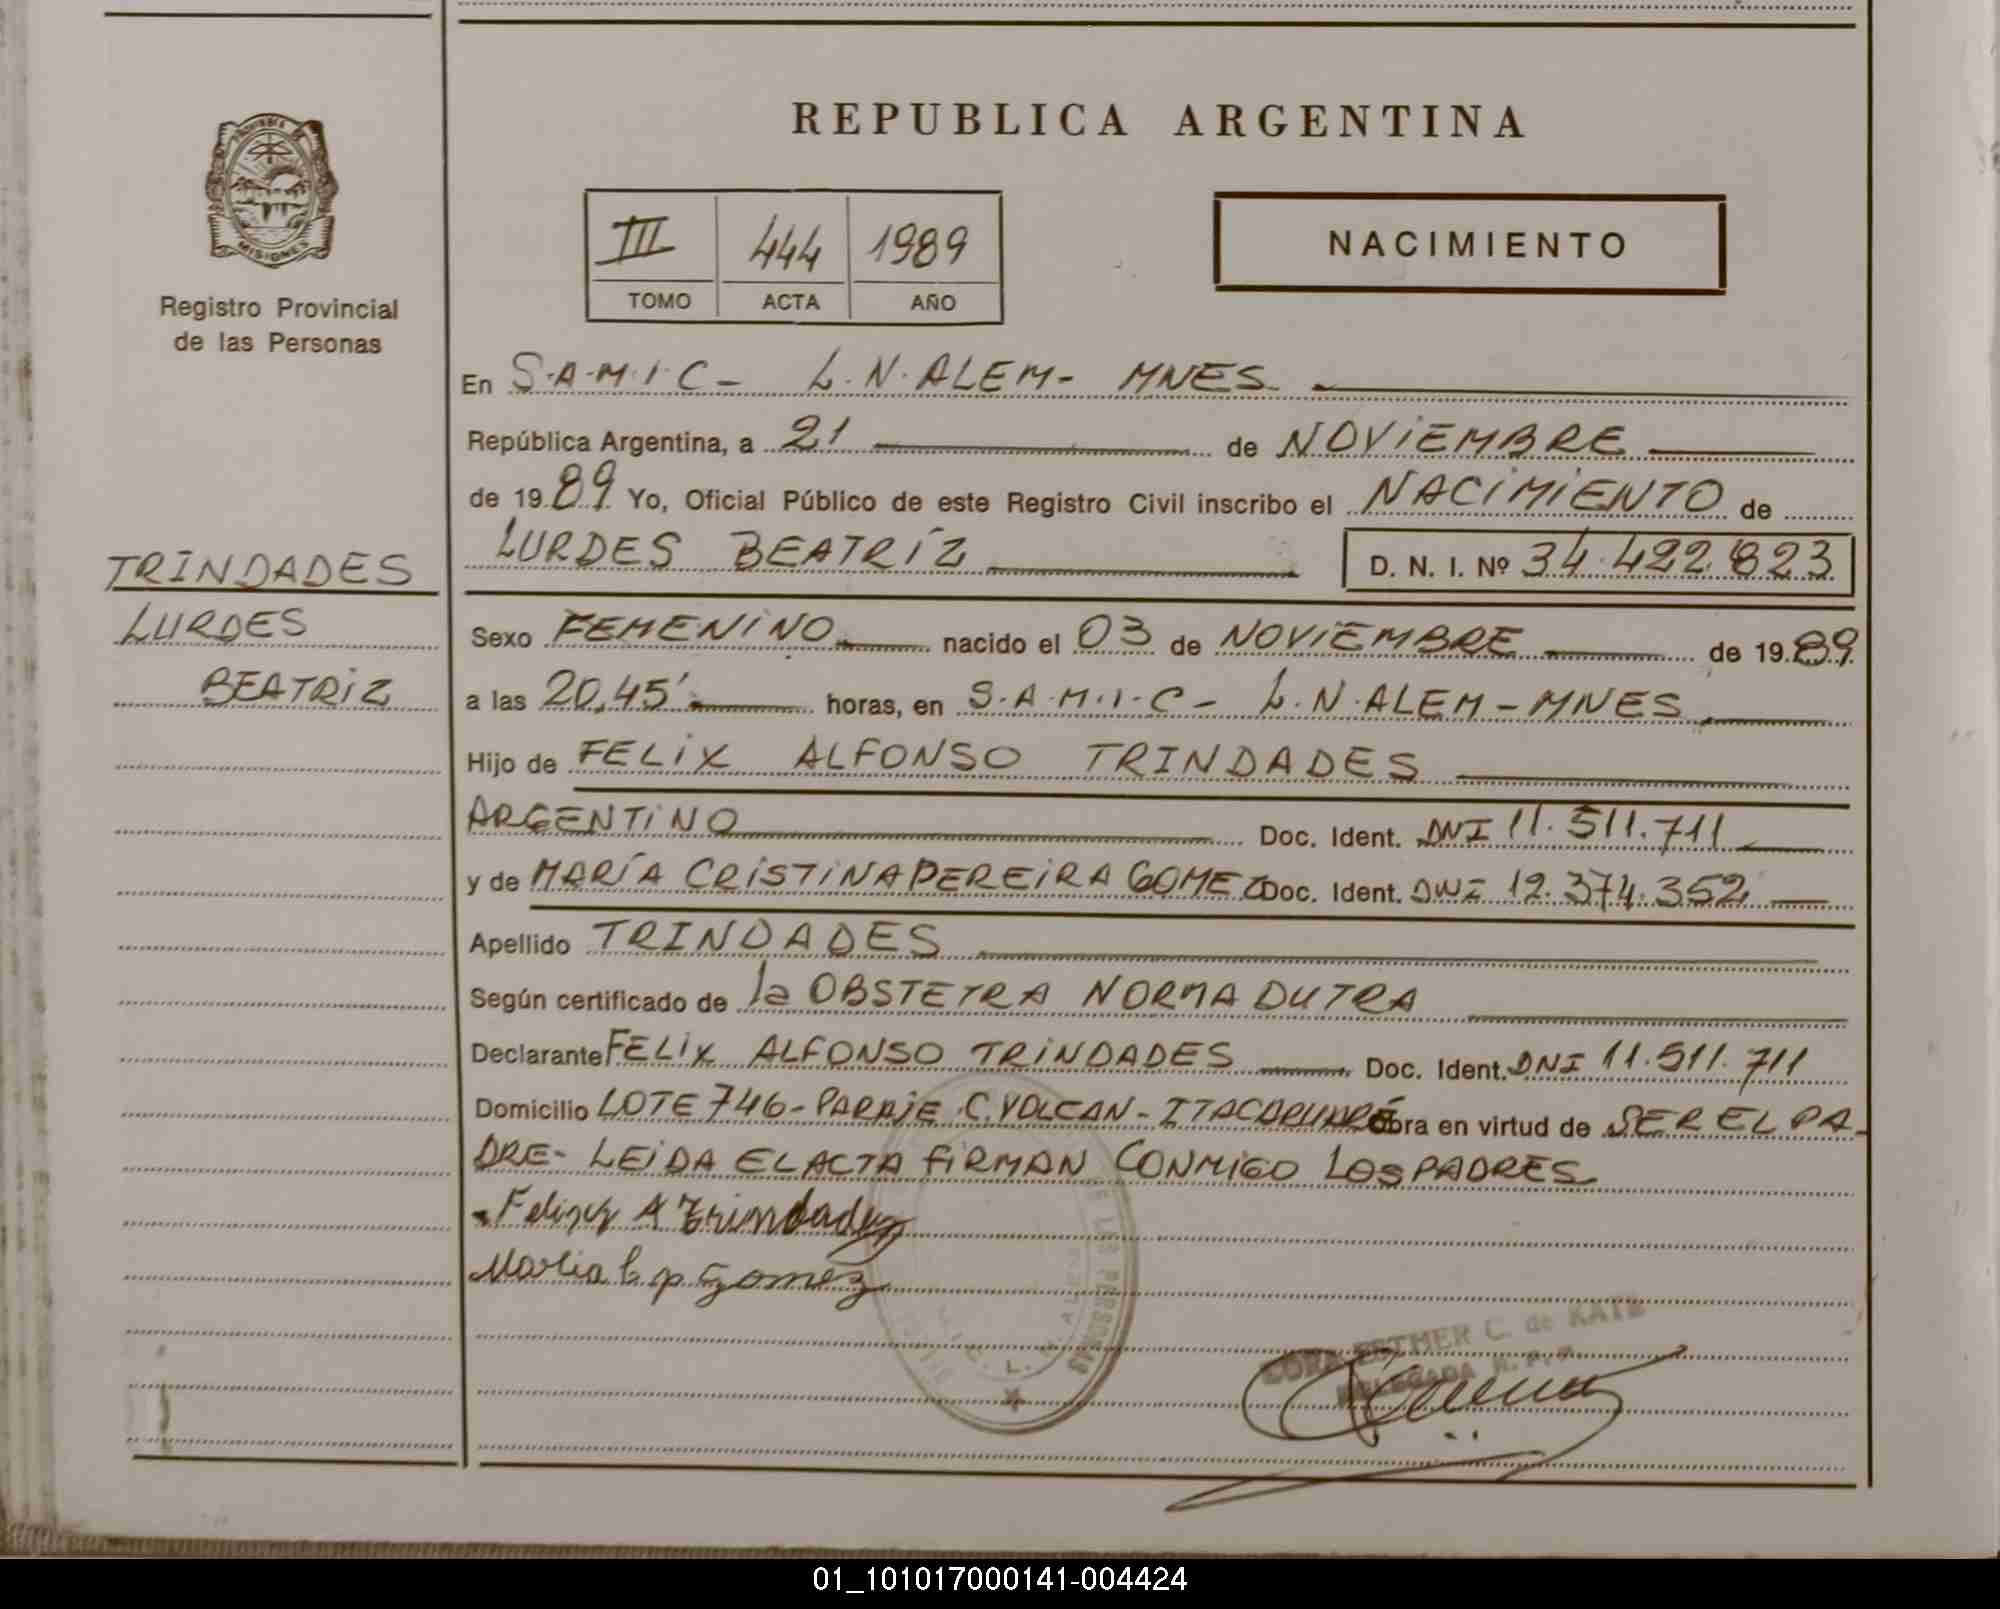 REPUBLICA ARGENTINA
MISIONES
Registro Provincial
de las Personas
III 444 1989
TOMO ACTA AÑO
NACIMIENTO
En S.A.M.I.C- L.N.ALEM- MNES
República Argentina, a 21 de NOViEMBRE
de 1989 Yo, Oficial Público de este Registro Civil inscribo el NACiMiENTO de
LURDES BEATRÍZ D. N. I. Nº 34.422.823
TRINDADES
LURDES
BEATRiZ
Sexo FEMENiNO nacido el 03 de NOViEMBRE de 1989
a las 20,45' horas, en S.A.M.I.C- L.N.ALEM-MNES
Hijo de FELiX ALFONSO TRINDADES
ARGENTiNO Doc. Ident. DNI 11.511.711
y de MARÍA CRiSTiNA PEREiRA GOMEZ Doc. Ident. DNI 12.374.352
Apellido TRINDADES
Según certificado de la OBSTETRA NORMA DUTRA
Declarante FELiX ALFONSO TRiNDADES Doc. Ident. DNI 11.511.711
Domicilio LOTE 746-PARAJE C.VOLCAN-ITACARUARÉ Obra en virtud de SER EL PA-
DRE- LEiDA EL ACTA FiRMAN CONMIGO LOS PADRES
Felix A Trindades
Maria C p Gomez
DE LAS PERSONAS
L. N. ALEM
CORA ESTHER C. de KATZ
DELEGADA R. P. P.
01_101017000141-004424